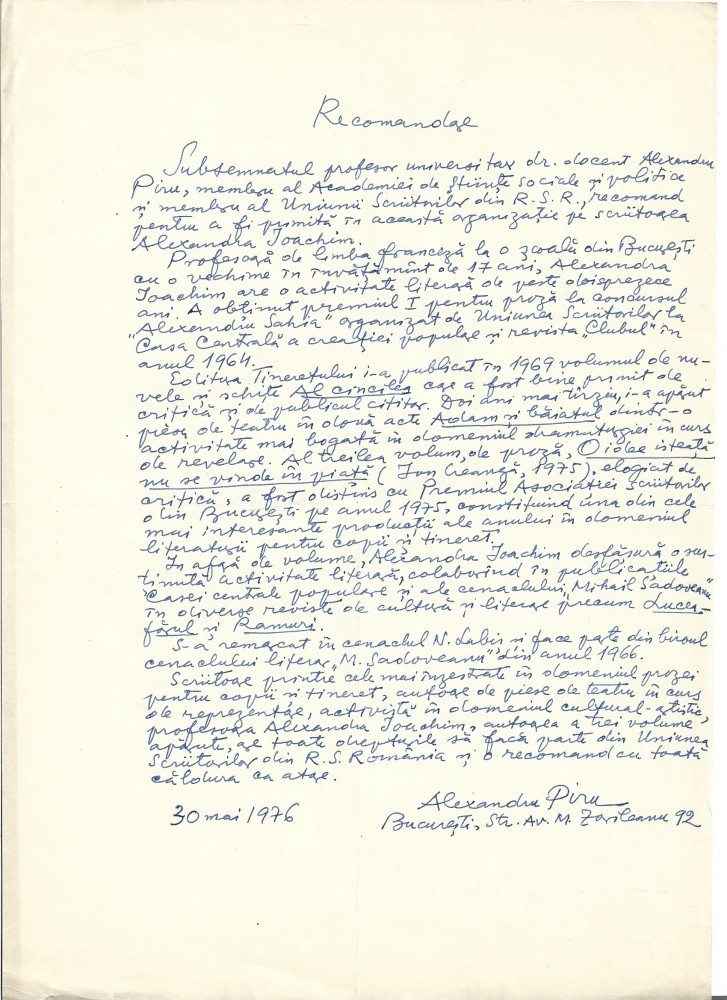 Recomandare
Subsemnatul profesor universitar dr. docent Alexandru
Piru, membru al Academiei de Științe sociale și politice
și membru al Uniunii Scriitorilor din R.S.R., recomand
pentru a fi primită în această organizație pe scriitoarea
Alexandra Ioachim.
Profesoară de limba franceză la o școală din București
cu o vechime în învățămînt de 17 ani, Alexandra
Ioachim are o activitate literară de peste doisprezece
ani. A obținut premiul I pentru proză la concursul
"Alexandru Sahia" organizat de Uniunea Scriitorilor la
Casa Centrală a creației populare și revista "Clubul" în
anul 1964.
Editura Tineretului i-a publicat în 1969 volumul de nu-
vele și schițe Al cincilea care a fost bine primit de
critică și de publicul cititor. Doi ani mai tîrziu, i-a apărut
piesa de teatru în două acte Adam și băiatul dintr-o
activitate mai bogată în domeniul dramaturgiei în curs
de revelare. Al treilea volum, de proză, O idee isteață
nu se vinde în piață (Ion Creangă, 1975), elogiat de
critică, a fost distins cu Premiul Asociației scriitorilor
din București pe anul 1975, constituind una din cele
mai interesante producții ale anului în domeniul
literaturii pentru copii și tineret.
În afară de volume, Alexandra Ioachim desfășură o sus-
ținută activitate literară, colaborînd în publicațiile
Casei centrale populare și ale cenaclului "Mihail Sadoveanu"
în diverse reviste de cultură și literare precum Lucea-
fărul și Ramuri.
S-a remarcat în cenaclul N. Labiș și face parte din biroul
cenaclului literar "M. Sadoveanu" din anul 1966.
Scriitoare printre cele mai înzestrate în domeniul prozei
pentru copii și tineret, autoare de piese de teatru în curs
de reprezentare, activistă în domeniul cultural-artistic,
profesoara Alexandra Ioachim, autoarea a trei volume
apărute, are toate drepturile să facă parte din Uniunea
Scriitorilor din R.S. România și o recomand cu toată
căldura ca atare.
30 mai 1976
Alexandru Piru
București, Str. Av. M. Zorileanu 92